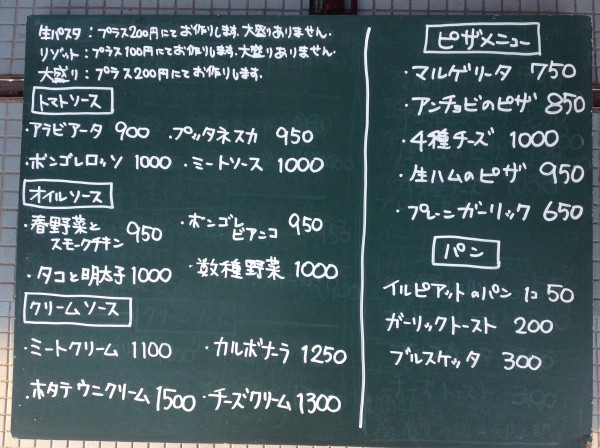 生パスタ：プラス200円にてお作りします.大盛りありません.
リゾット：プラス100円にてお作りします.大盛りありません.
大盛り：プラス200円にてお作りします.
トマトソース
・アラビアータ 900 ・プッタネスカ 950
・ボンゴレロッソ 1000 ・ミートソース 1000
オイルソース
・春野菜と
スモークチキン 950
・ボンゴレ
ビアンコ 950
・タコと明太子 1000 ・数種野菜 1000
クリームソース
・ミートクリーム 1100 ・カルボナーラ 1250
・ホタテウニクリーム 1500 ・チーズクリーム 1300
ピザメニュー
・マルゲリータ 750
・アンチョビのピザ 850
・4種チーズ 1000
・生ハムのピザ 950
・プレーンガーリック 650
パン
イルピアットのパン 1コ 50
ガーリックトースト 200
ブルスケッタ 300